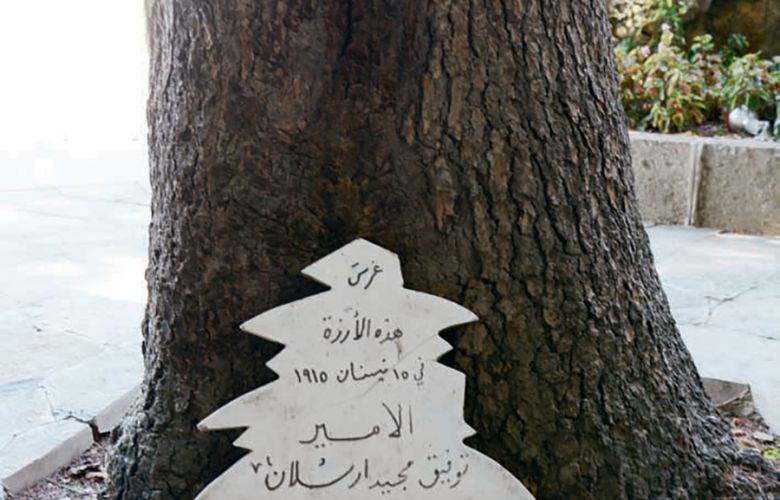 غرسَ
هذه الأرزة
في ١٥ نيسان ١٩١٥
الامير
توفيق مجيد ارسلان